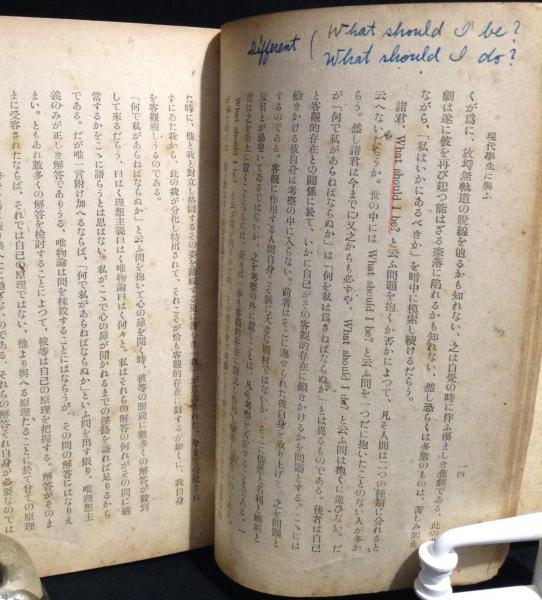 Different ( What should I be?
What should I do?
現代學生に與ふ
一四
くが爲に、放埓無軌道の脫線を辿るかも知れない、之は自覺の時に伴ふ傷ましき悲劇である、此の悲
劇は遂に彼を再び起つ能はざる奈落に陷れるかも知れない、然し恐らくは多數のものは、苦しみ悶え
ながら、「私はいかにあるべきか」を暗中に摸索し續けるだらう。
諸君、What should I be? と云ふ問題を抱いたか否かによつて、凡そ人間は二つの種類に分れると
云へないだらうか。世の中には What should I be? と云ふ問を一つだに抱いたことのない人が多か
らう。然し諸君は今までに又之からも必ずや、What should I do? と云ふ問は抱くに違ひない。だ
が「何で私があらねばならぬか」は「何を私は爲さねばならぬか」とは異るものである、後者は自己
と客觀的存在との關係に於て、いかに自己がその客觀的存在に働きかけるかを問題とする。こゝには
働きかける彼自身は考察の中に入らない。前者はそこに逸せられた彼自身を取り上げて、之を問題と
するのである。客觀に作用する人間自身
た時に、他と我と對立し格鬪するその姿を
すにゐた我から、此の我が分化し特出されて、それこそが恰も客觀的存在に對するが如くに、我自身
を客觀視しうるのである。
「何で私があらねばならぬか」と云ふ問を抱いて心の扉を開く時、彼等の眼前に數多くの解答が殺到
して來るだらう、曰はく理想主義曰はく唯物論曰はく何々と、私はそれらの解答の何れがその問に適
當するかをこゝに語らうとは思はない。私がこゝで心の扉が開かれるまでの徑路を語れば足りるから
である。だが唯一言附け加へるならば、「何で私があらねばならぬか」といふ問を出す限り、唯理想主
義のみが正しき解答でありうる、唯物論は問を抹殺することにはならうが、その問の解答にはなりえ
まい。ともあれ數多くの解答を檢討することによつて、彼等は自己の原理を把握する。解答がそのま
まに受容されたならば、それでは自己の原理ではない、他より與へる原理たることに於て曾ての原理